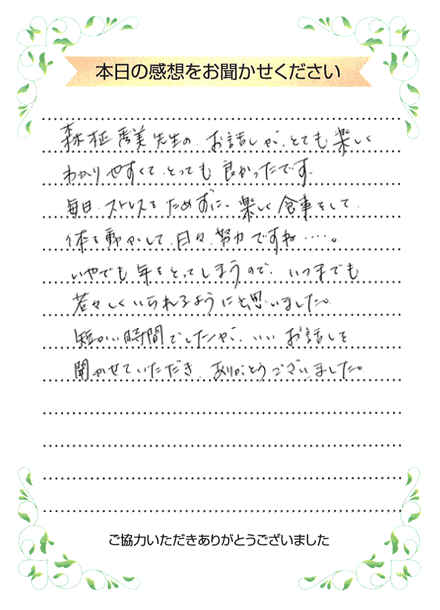 本日の感想をお聞かせください
森柾秀美先生の お話しが、とても楽しく
わかりやすくて とっても 良かったです。
毎日、ストレスをためずに、楽しく食事をして、
体を動かして、日々、努力ですね……。
いやでも 年をとってしまうので、いつまでも
若々しくいられるようにと思いました。
短かい時間でしたが、いい お話しを
聞かせていただき、ありがとうございました。
ご協力いただきありがとうございました